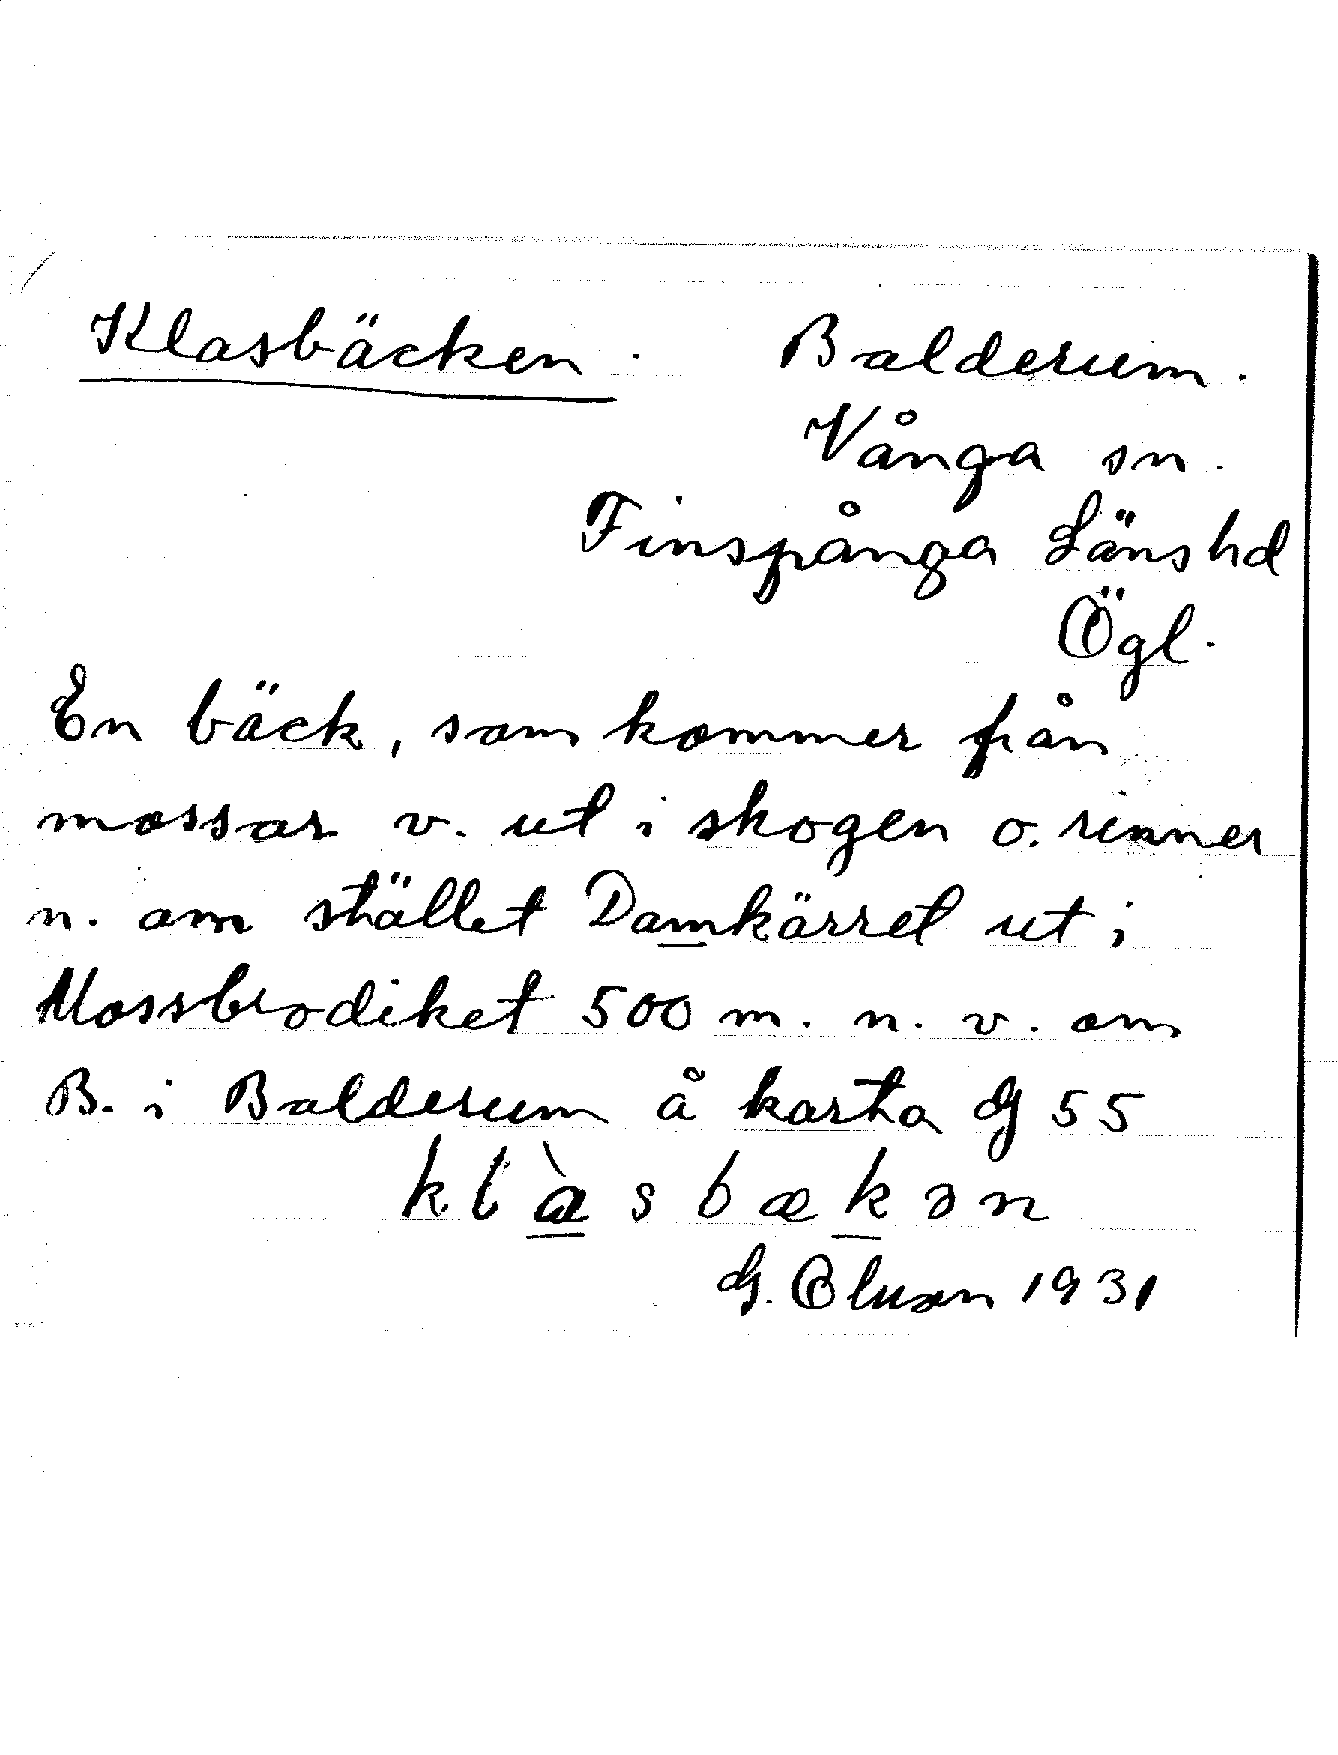 Klasbäcken. Balderum.
Vånga sn.
Finspånga Länshd
Ögl.
En bäck, som kommer från
mossar v. ut i skogen o. rinner
n. om stället Damkärret ut i
Mossbrodiket 500 m. n. v. om
B. i Balderum å karta G 55
klàsbækən
G. Olsson 1931